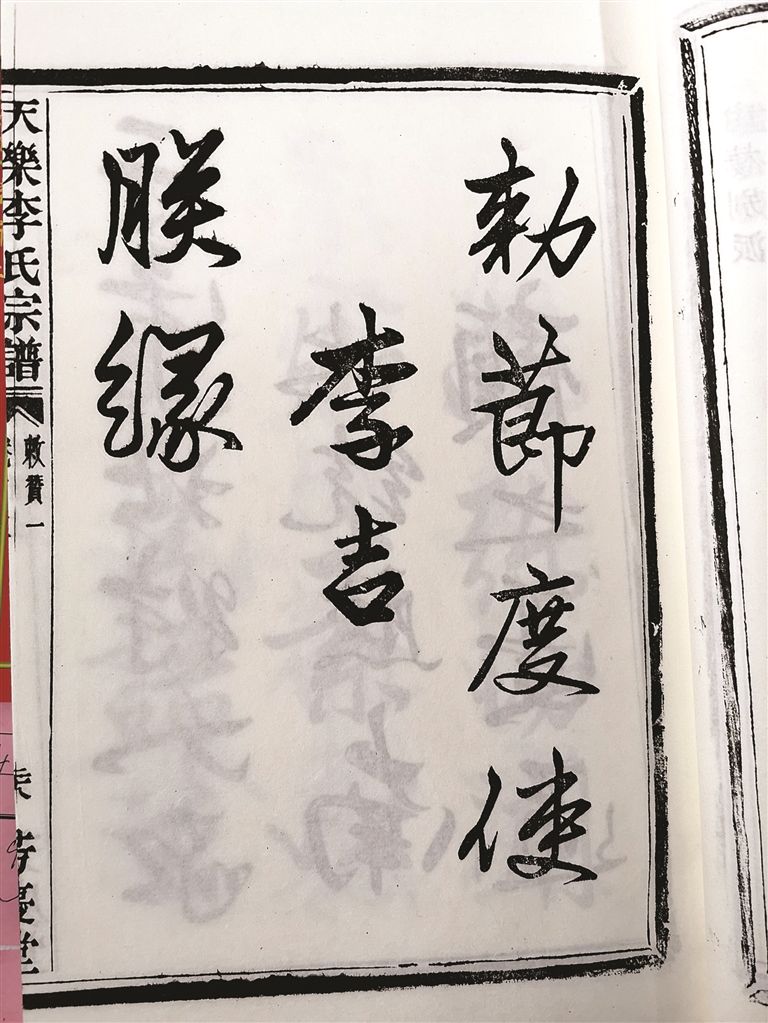 勅節度使
李吉
朕緣
天樂李氏宗譜
敕贊一